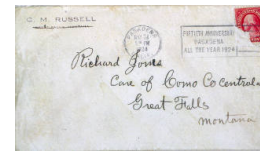 C. M. RUSSELL
PASADENA
1924
FIFTIETH ANNIVERSARY
PASADENA
ALL THE YEAR 1924
Richard Jones
Care of Como Co Central
Great Falls
Montana